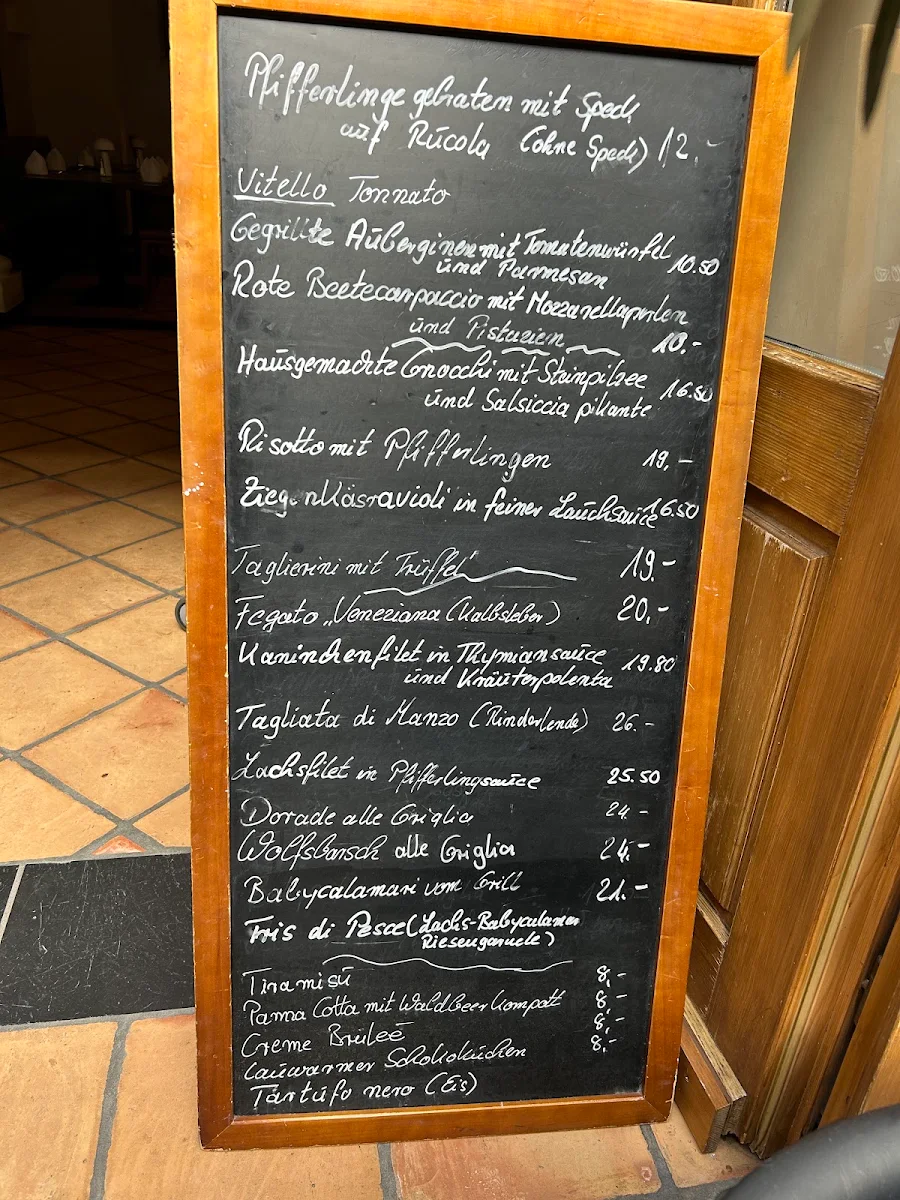 Pfifferlinge gebraten mit Speck
auf Rucola (ohne Speck) 12.-
Vitello Tonnato
Gegrillte Auberginen mit Tomatenwürfel
und Parmesan 10.50
Rote Beetecarpaccio mit Mozzarellaperlen
und Pistazien 10.-
Hausgemachte Gnocchi mit Steinpilzee
und Salsiccia pikante 16.50
Risotto mit Pfifferlingen 19,-
Ziegenkäsravioli in feiner Lauchsauce 16.50
Taglierini mit Trüffel 19.-
Fegato „Veneziana (Kalbsleber) 20,-
Kaninchenfilet in Thymiansauce
und Kräuterpolenta 19.80
Tagliata di Manzo (Rinderlende) 26.-
Lachsfilet in Pfifferlingsauce 25.50
Dorade alle Griglia 24.-
Wolfsbarsch alle Griglia 24.-
Babycalamari vom Grill 21.-
Tris di Pesce (Lachs-Babycalamar
Riesengarnele)
Tiramisu 8,-
Panna Cotta mit Waldbeerkompott 8,-
Creme Bruleé 8,-
Lauwarmer Schokokuchen 8,-
Tartufo nero (Eis)